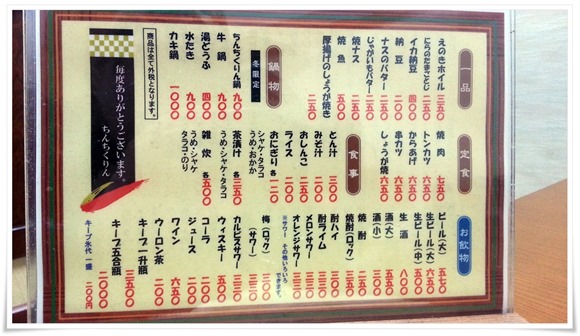 一品
えのきホイル 三五〇
にらのたまごとじ 二五〇
イカ納豆 四〇〇
納豆 二〇〇
ナスのバター 二五〇
じゃがいもバター
焼ナス 二五〇
焼魚 五〇〇
厚揚げのしょうが焼き 二五〇
鍋物
冬限定
ちんちくりん鍋 九〇〇
牛鍋 九〇〇
湯どうふ 四〇〇
水たき 九〇〇
カキ鍋 一〇〇〇
商品は全て外税となります。
毎度ありがとうございます。
ちんちくりん
定食
焼肉 七五〇
トンカツ 六五〇
からあげ 六五〇
串カツ 六五〇
しょうが焼 六五〇
食事
とん汁 三〇〇
みそ汁
おしんこ 二五〇
ライス 二〇〇
おにぎり 各一二〇
シャケ・タラコ
うめ・おかか
茶漬け 各三五〇
うめ・シャケ・タラコ
雑炊 各五〇〇
うめ・シャケ
タラコ・のり
お飲物
ビール(大) 五七〇
生ビール(大) 六五〇
生ビール(中) 五〇〇
生酒 八〇〇
酒(大)
酒(小)
焼酎
焼酎(ロック)
酎ハイ
酎ライム
メロンサワー
オレンジサワー
※サワー その他いろいろできます。
梅(ロック)
(サワー)
カルピスサワー
ウィスキー
コーラ 二〇〇
ジュース 二〇〇
ワイン 六五〇
ウーロン茶 二〇〇
キープ一升瓶 三五〇〇
キープ五合瓶 二〇〇〇
キープ氷代一盛 二〇〇円